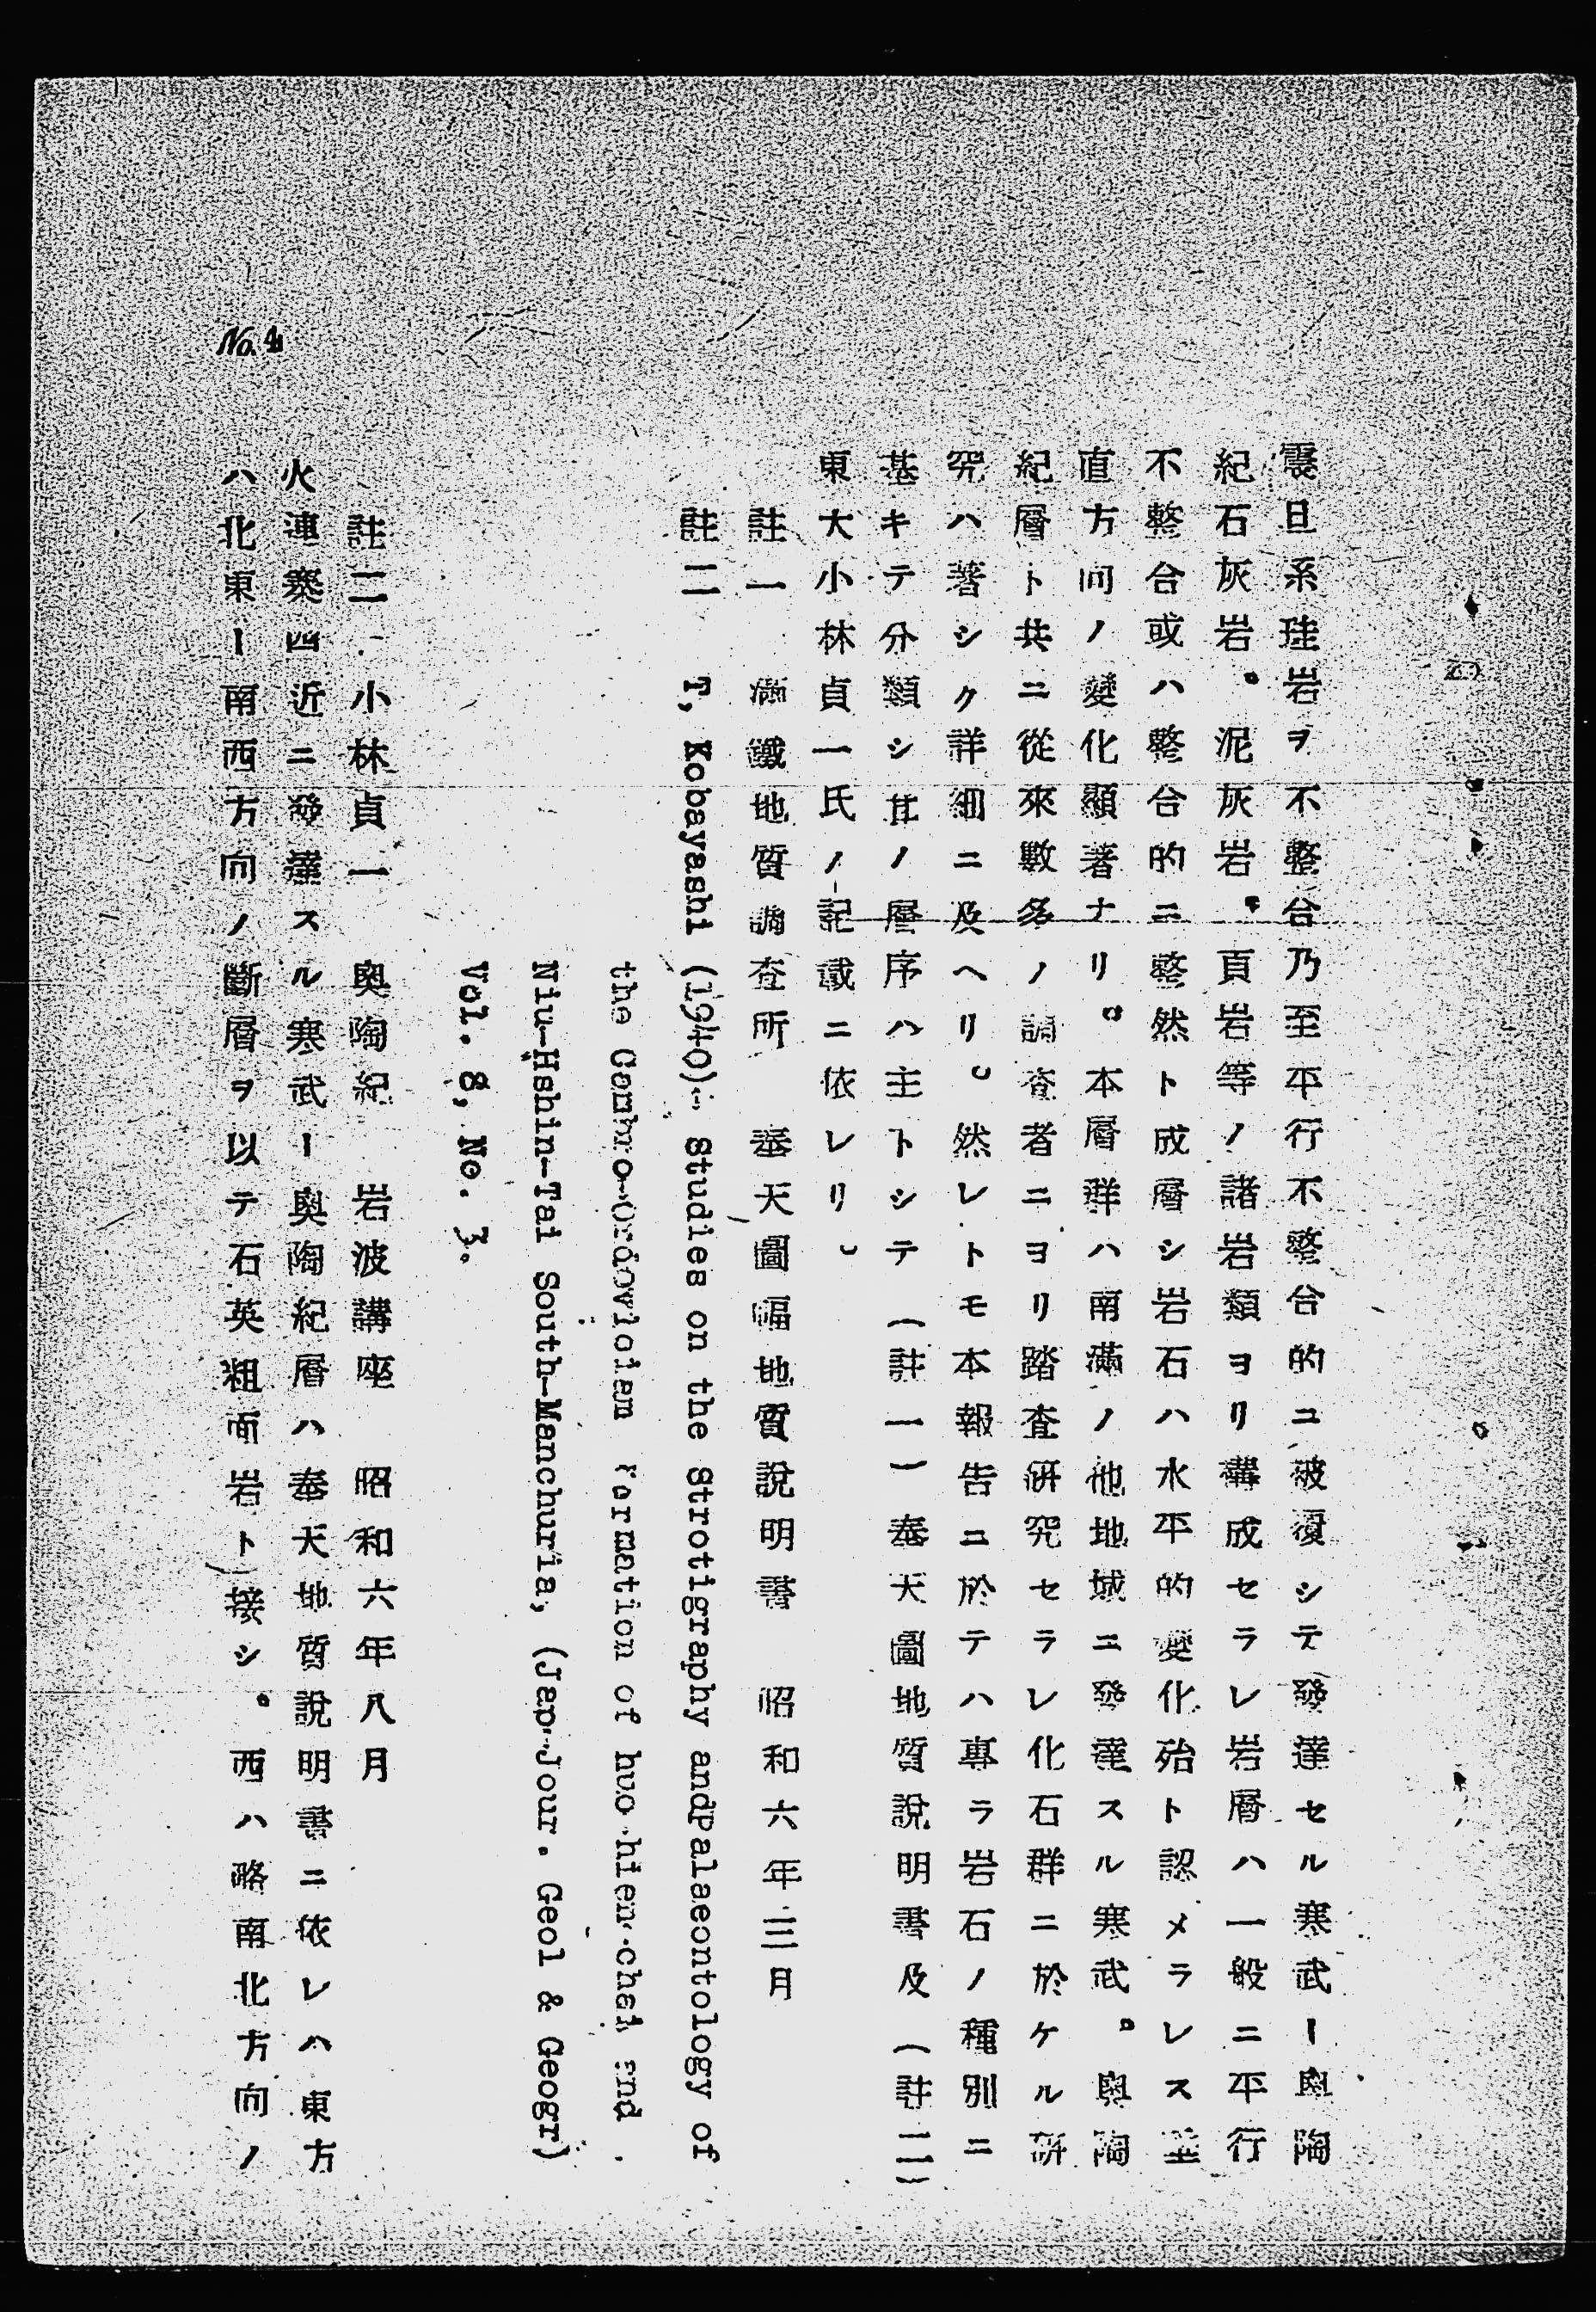 震旦系珪岩ヲ不整合乃至平行不整合的ニ被復シテ發達セル寒武ー奥陶
紀石灰岩。泥灰岩。頁岩等ノ諸岩類ヨリ構成セラレ岩層ハ一般ニ平行
不整合或ハ整合的ニ整然ト成層シ岩石ハ水平的變化殆ト認メラレス垂
直方向ノ變化顯著ナリ。本層群ハ南滿ノ他地域ニ發達スル寒武。奥陶
紀層ト共ニ從來數多ノ調査者ニヨリ踏査研究セラレ化石群ニ於ケル研
究ハ著シク詳細ニ及ヘリ。然レトモ本報告ニ於テハ專ラ岩石ノ種別ニ
基キテ分類シ其ノ層序ハ主トシテ(註一)奉天圖地質說明書及(註二)
東大小林貞一氏ノ記載ニ依レリ。
註一 滿鐵地質調査所 奉天圖幅地質說明書 昭和六年三月
註二 T, Kobayashi (1940): Studies on the Strotigraphy andPalaeontology of
the Combro-Ordovioien Formation of huo-hien-chai and
Niu-Hshin-Tai South-Manchuria, (Jap-Jour. Geol & Geogr)
Vol. 8, No. 3.
註二 小林貞一 奥陶紀 岩波講座 昭和六年八月
火連寨四近ニ發達スル寒武ー奥陶紀層ハ奉天地質說明書ニ依レハ東方
ハ北東ー南西方向ノ斷層ヲ以テ石英粗面岩ト接シ。西ハ略南北方向ノ
No. 4